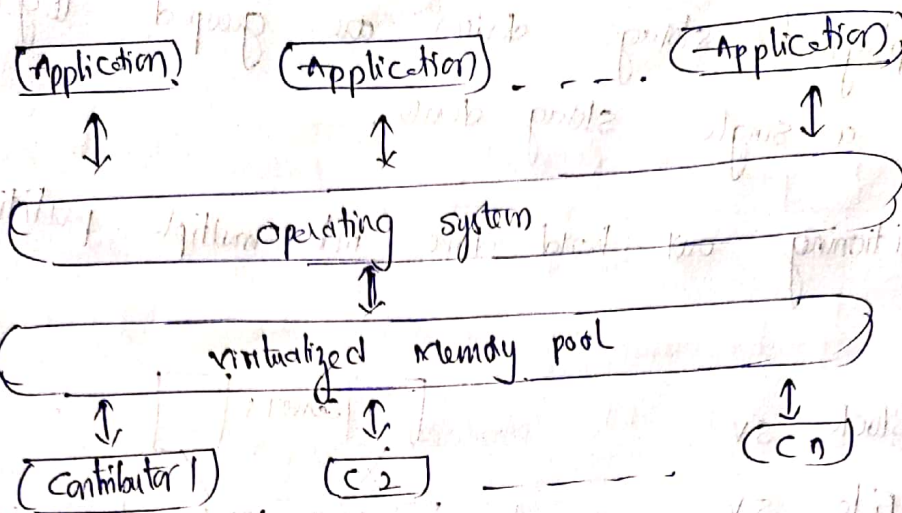 Application Application - - - - . Application
Operating system
virtualized memory pool
Contributor 1 C 2 - - - - C n